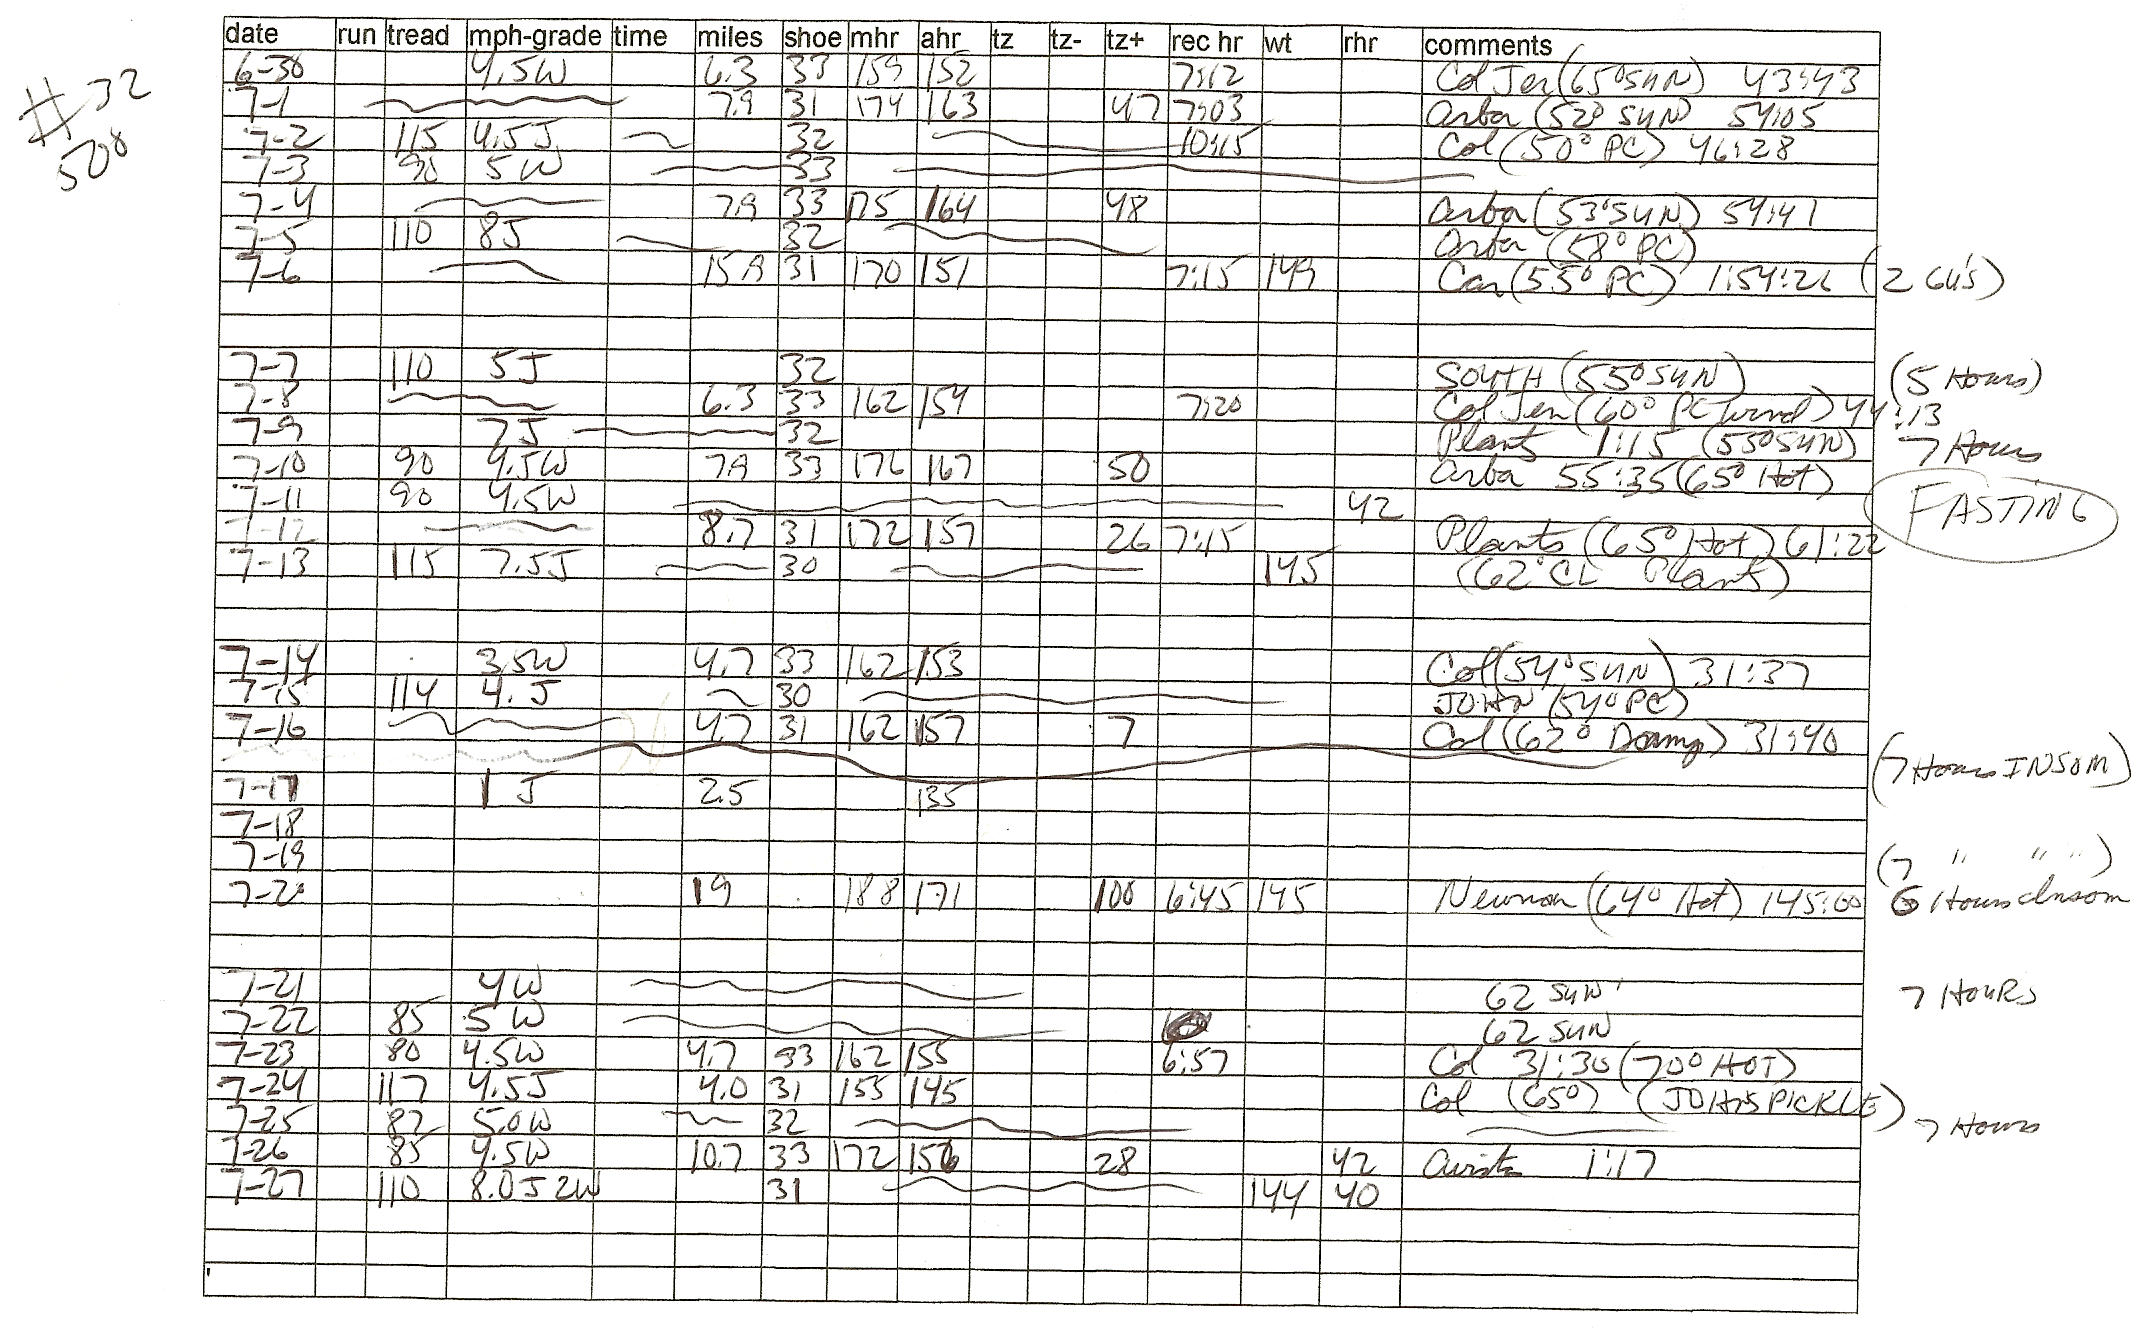 date run tread mph-grade time miles shoe mhr ahr tz tz- tz+ rec hr wt rhr comments
#32
508
6-30 4.5W 6.3 33 159 152 7:12 Col Jen (65° SUN) 43:43
7-1 7.9 31 174 163 47 7:03 Arbor (52° SUN) 54:05
7-2 115 4.5J 32 10:15 Col (50° PC) 46:28
7-3 90 5W 33
7-4 7.9 33 175 164 48 Arbor (53° SUN) 54:41
7-5 110 8J 32 Arbor (58° PC)
7-6 15.9 31 170 151 7:15 149 Car (55° PC) 1:54:26 (2 GU'S)
7-7 110 5J 32 SOUTH (55° SUN) (5 Hours)
7-8 6.3 33 162 154 7:20 Col Jen (60° PC wind) 44:13
7-9 7J 32 Plants 1:15 (55° SUN) 7 Hours
7-10 90 4.5W 7.9 33 176 167 50 Arbor 55:35 (65° Hot)
7-11 90 4.5W 42 FASTING
7-12 8.7 31 172 157 26 7:15 Plants (65° Hot) 61:22
7-13 115 7.5J 30 145 (62° CL Plants)
7-14 3.5W 4.7 33 162 153 Col (54° SUN) 31:37
7-15 114 4. J 30 JOHN (54° PC)
7-16 4.7 31 162 157 7 Col (62° Damp) 31:40
(7 Hours INSOM)
7-17 1 J 2.5 135
7-18
7-19 (7 " " ")
7-20 19 188 171 100 6:45 145 Newman (64° Hot) 145:00 6 Hours Insom
7-21 4W 62 SUN 7 HOURS
7-22 85 5W 62 SUN
7-23 80 4.5W 4.7 33 162 155 6:57 Col 31:30 (70° HOT)
7-24 117 4.5J 4.0 31 155 145 Col (65°) (JOHNS PICKLE)
7-25 82 5.0W 32 7 Hours
7-26 85 4.5W 10.7 33 172 156 28 42 1:17
7-27 110 8.0J 2W 31 144 40